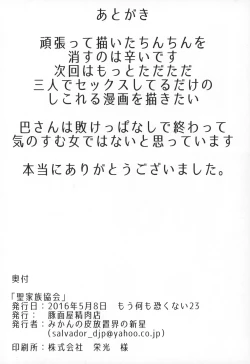 あとがき
頑張って描いたちんちんを
消すのは辛いです
次回はもっとただただ
三人でセックスしてるだけの
しこれる漫画を描きたい
巴さんは敗けっぱなしで終わって
気のすむ女ではないと思っています
本当にありがとうございました。
奥付
「聖家族協会」
発行日：2016年5月8日　もう何も恐くない23
発行：　豚面屋精肉店
発行者：みかんの皮放置界の新星
（salvador_djp@yahoo.co.jp）
印刷所：株式会社　栄光　様